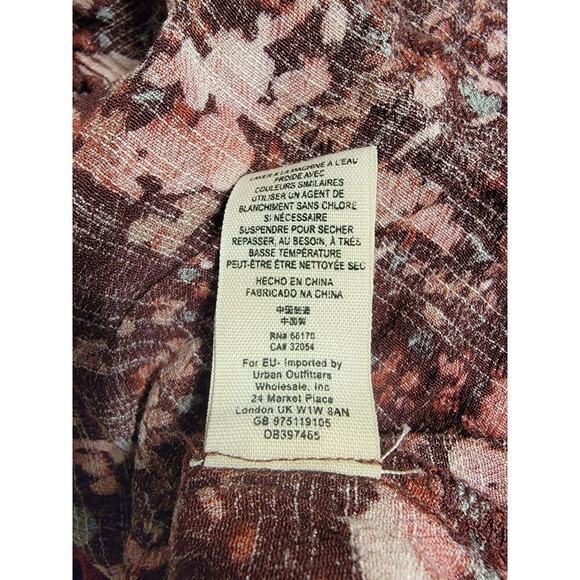 LAVER À LA MACHINE À L'EAU
FROIDE AVEC
COULEURS SIMILAIRES
UTILISER UN AGENT DE
BLANCHIMENT SANS CHLORE
SI NÉCESSAIRE
SUSPENDRE POUR SÉCHER
REPASSER, AU BESOIN, À TRÈS
BASSE TEMPÉRATURE
PEUT-ÊTRE ÊTRE NETTOYÉE SEC
HECHO EN CHINA
FABRICADO NA CHINA
中国制造
中國製
RN# 66170
CA# 32054
For EU- Imported by
Urban Outfitters
Wholesale, Inc
24 Market Place
London UK W1W 8AN
GB 975119105
OB397465